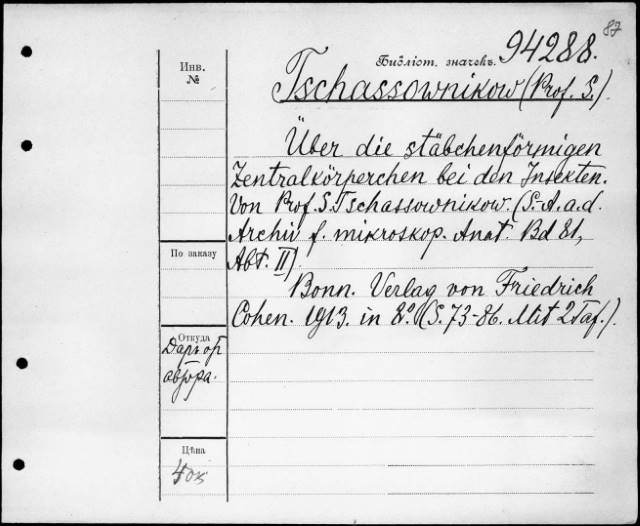 87
Инв.
№
Библіот. значекъ. 94288.
Tschassownikow (Prof. S.).
Über die stäbchenförmigen
Zentralkörperchen bei den Insekten.
Von Prof. S. Tschassownikow. (S.-A. a. d.
Archiv f. mikroskop. Anat. Bd 81,
Abt. II).
Bonn. Verlag von Friedrich
Cohen. 1913. in 8°. (S. 73-86. Mit 2 Taf.).
По заказу
Откуда
Даръ от
автора.
Цѣна
40